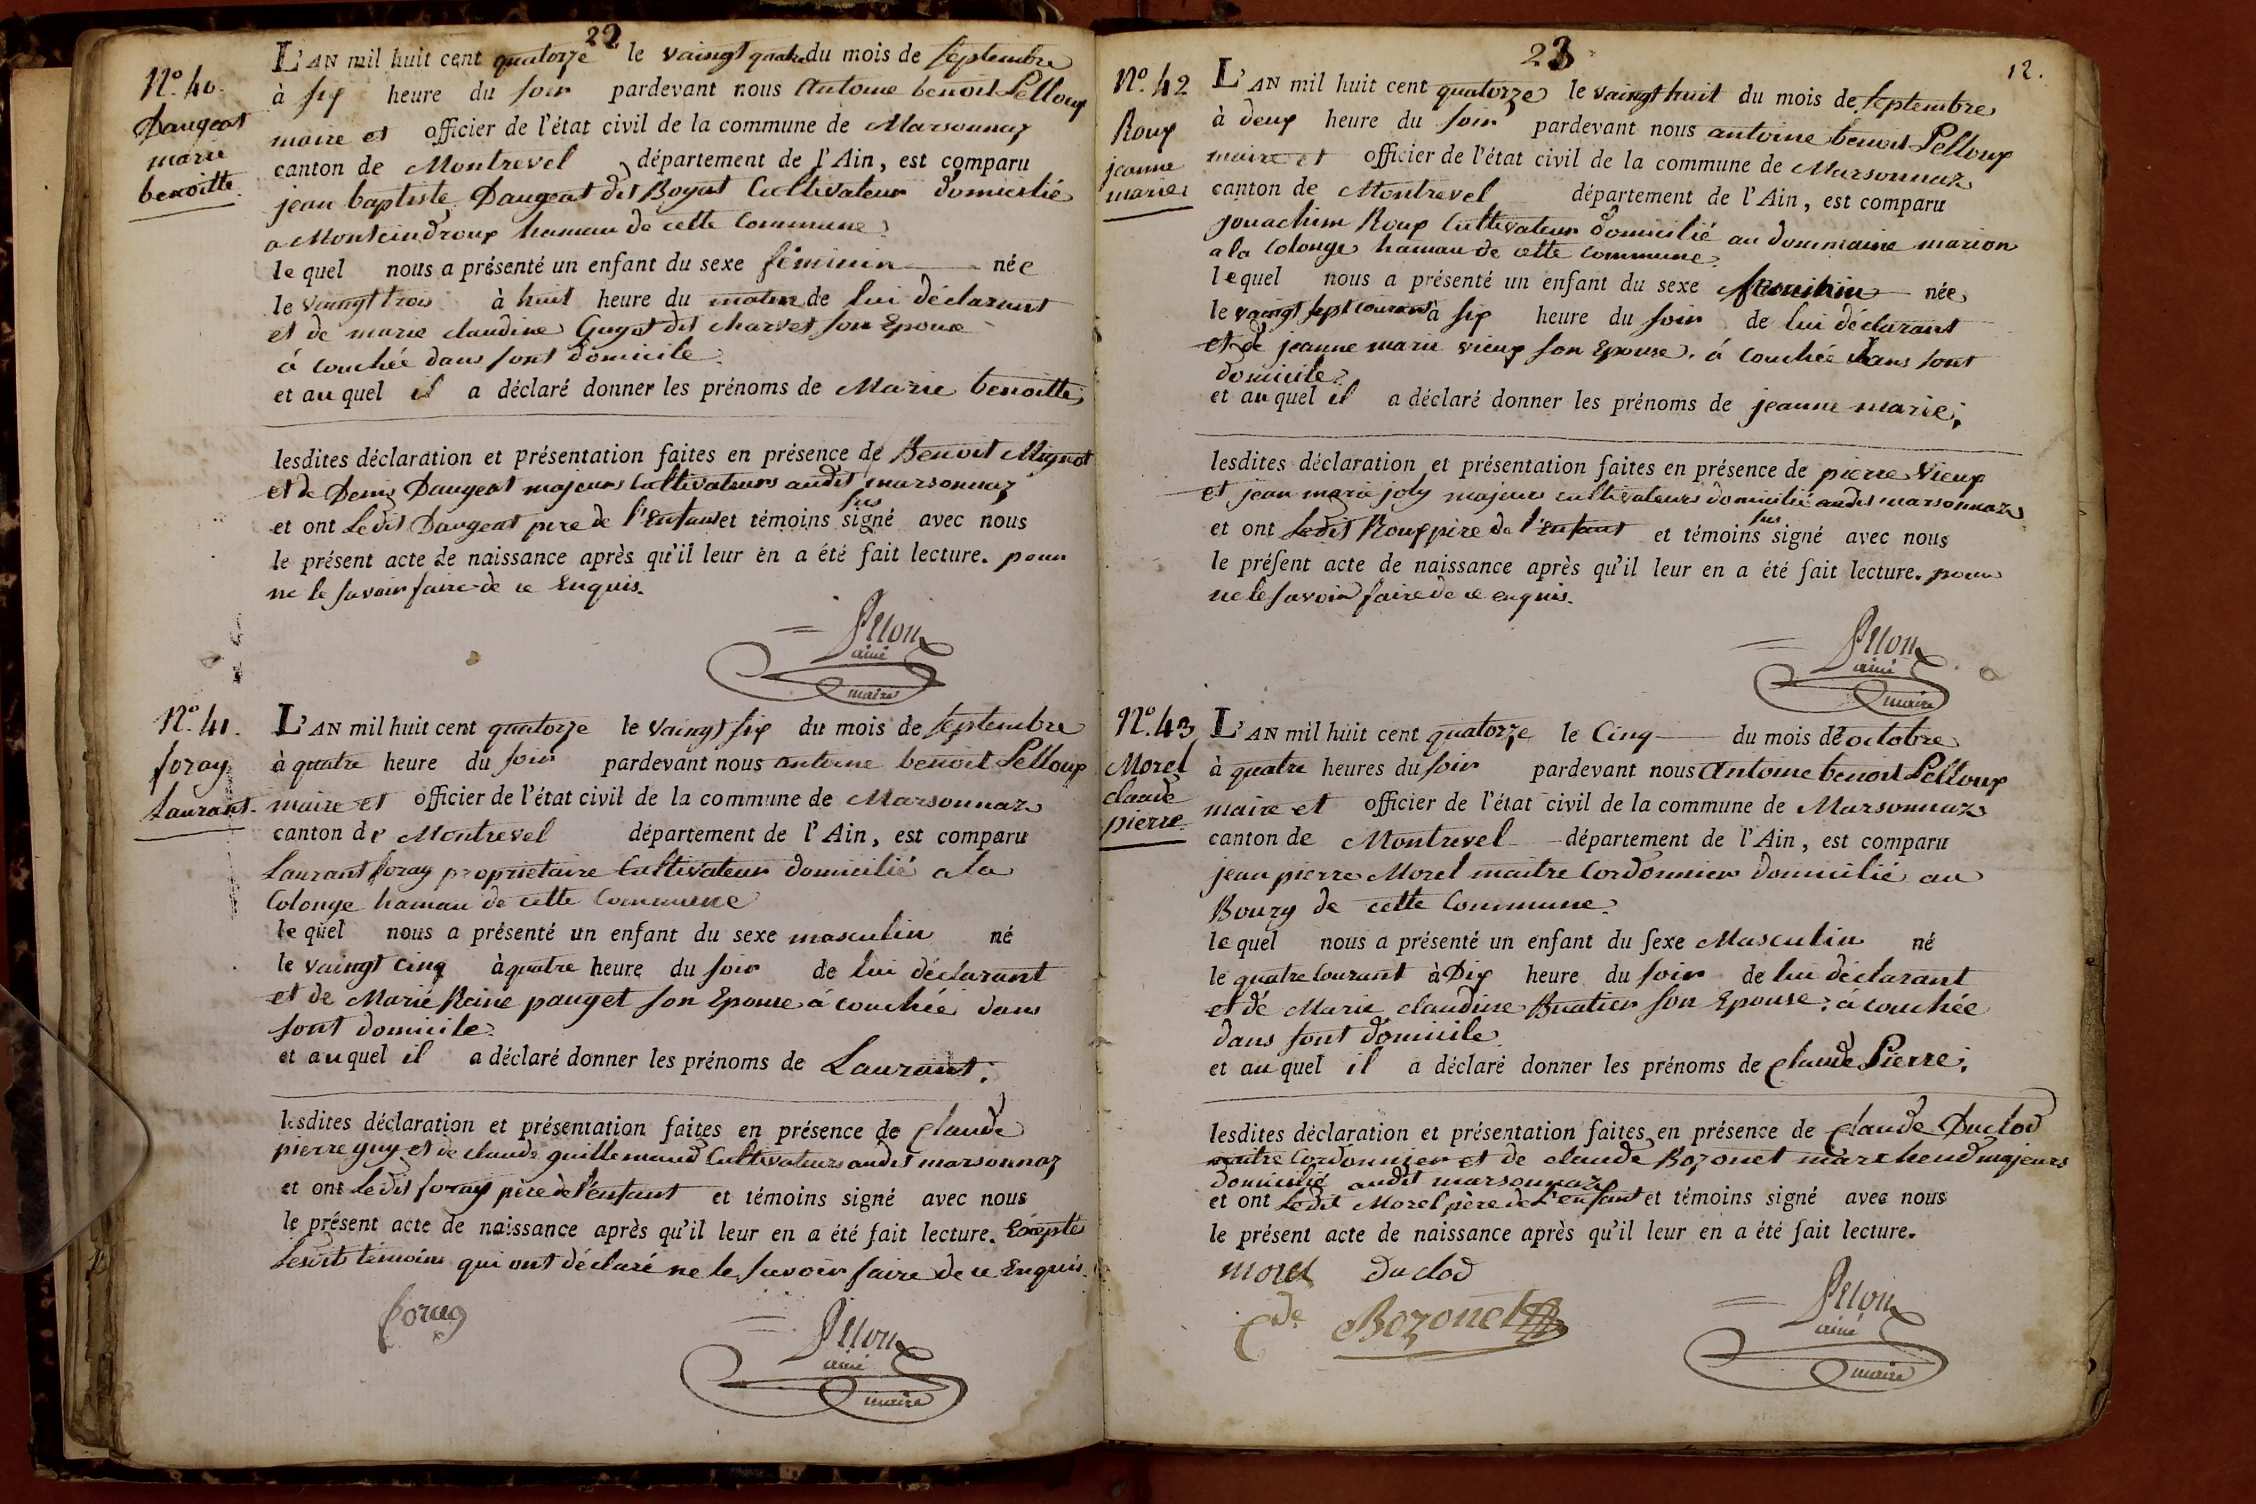 22
N.º 40.
Daugeat
marie
benoitte.
L'AN mil huit cent quatorze le vaingt quatre du mois de septembre
à six heure du soir pardevant nous Antoine benoit Pelloux
maire et officier de l'état civil de la commune de Marsonnaz
canton de Montrevel département de l'Ain, est comparu
jean baptiste Daugeat dit Boyat Cultivateur domicilié
a Montcindroux hameau de cette Commune.
le quel nous a présenté un enfant du sexe féminin née
le vaingt trois à huit heure du matin de lui déclarant
et de marie claudine Guyot dit charvet son Epouse
á couchée dans sont domicile.
et au quel il a déclaré donner les prénoms de Marie benoitte,
lesdites déclaration et présentation faites en présence de Benoit Mignot
et de Denis Daugeat majeurs Cultivateurs audit marsonnaz
et ont Ledit Daugeat pere de l'Enfant et témoins sus signé avec nous
le présent acte de naissance après qu'il leur en a été fait lecture. pour
ne le savoir faire de ce Enquis.
Pelloux
ainé
maire
N.º 41.
foray
Laurant.
L'AN mil huit cent quatorze le vaingt six du mois de septembre
à quatre heure du soir pardevant nous antoine benoit Pelloux
maire et officier de l'état civil de la commune de Marsonnaz
canton de Montrevel département de l'Ain, est comparu
Laurant foray proprietaire Cultivateur domicilié a la
Colonge hameau de cette Commune
le quel nous a présenté un enfant du sexe masculin né
le vaingt cinq à quatre heure du soir de lui déclarant
et de Marie Reine pauget son Epouse á couchée dans
sont domicile.
et au quel il a déclaré donner les prénoms de Laurant.
lesdites déclaration et présentation faites en présence de Claude
pierre guy et de claude guillemaud Cultivateurs audit marsonnaz
et ont Ledit foray père de l'enfant et témoins signé avec nous
le présent acte de naissance après qu'il leur en a été fait lecture. Excepté
Lesdits témoins qui ont déclaré ne le savoir faire de ce Enquis.
foray
Pelloux
ainé
maire
23
12.
N.º 42
Roux
jeanne
marie
L'AN mil huit cent quatorze le vaingt huit du mois de septembre
à deux heure du soir pardevant nous antoine benoit Pelloux
maire et officier de l'état civil de la commune de Marsonnaz
canton de Montrevel département de l'Ain, est comparu
jouachim Roux Cultivateur domicilié au dommaine marion
a la Colonge hameau de cette Commune.
le quel nous a présenté un enfant du sexe féminin née
le vaingt sept courant à six heure du soir de lui déclarant
et de jeanne marie vieux son Epouse. á couchée dans sont
domicile.
et au quel il a déclaré donner les prénoms de jeanne marie.
lesdites déclaration et présentation faites en présence de pierre Vieux
et jean marie joly majeurs cultivateurs domicilié audit marsonnaz
et ont Ledit Roux père de l'Enfant et témoins sus signé avec nous
le présent acte de naissance après qu'il leur en a été fait lecture. pour
ne le savoir faire de ce enquis.
Pelloux
ainé
maire
N.º 43
Morel
claude
pierre.
L'AN mil huit cent quatorze le Cinq du mois de octobre
à quatre heures du soir pardevant nous Antoine benoit Pelloux
maire et officier de l'état civil de la commune de Marsonnaz
canton de Montrevel département de l'Ain, est comparu
jean pierre Morel maitre Cordonnier domicilié au
Bourg de cette Commune.
le quel nous a présenté un enfant du sexe Masculin né
le quatre Courant à Dix heure du soir de lui déclarant
et de Marie claudine Buatier son Epouse. a couchée
dans sont domicile.
et au quel il a déclaré donner les prénoms de Claude Pierre.
lesdites déclaration et présentation faites en présence de Claude Duclod
maitre Cordonnier et de claude Bozonet marchend majeurs
domicilié audit marsonnaz
et ont Ledit Morel père de L'enfant et témoins signé avec nous
le présent acte de naissance après qu'il leur en a été fait lecture.
morel Duclod
Cde Bozonet
Pelloux
ainé
maire